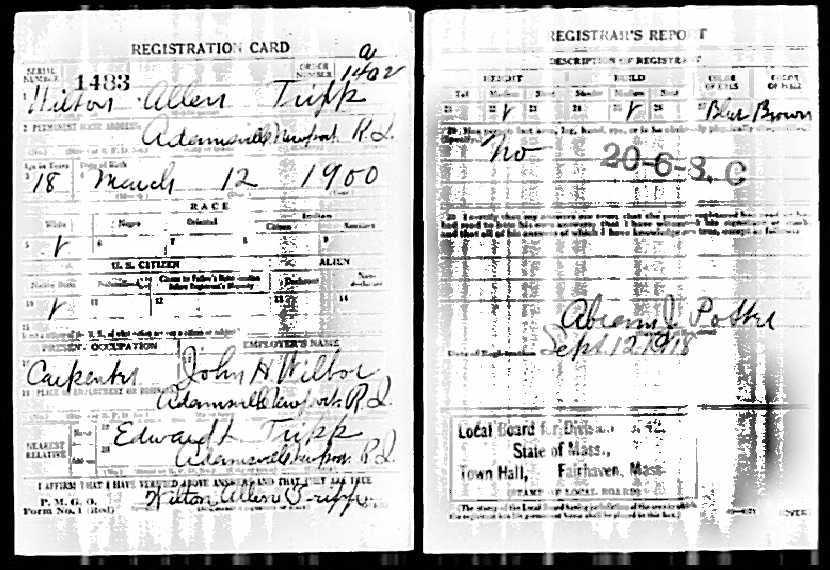 REGISTRATION CARD
SERIAL NUMBER 1483
ORDER NUMBER
1 Wilton Allen Tripp
2 PERMANENT HOME ADDRESS
Adamsville Newport R.I.
Age in Years
Date of Birth
3 18 March 12 1900
RACE
White Negro Oriental Indian
Citizen
5 ✓ 6 7 8 9
U. S. CITIZEN ALIEN
Native Born
Citizen by Father's Naturalization before Registrant's Majority
Declarant Non-declarant
10 ✓ 11 12 13 14
15
PRESENT OCCUPATION EMPLOYER'S NAME
Carpenter John H Wilbor
PLACE OF EMPLOYMENT OR BUSINESS
Adamsville Newport R.I.
NEAREST RELATIVE
Name
Edward L Tripp
Address
Adamsville Newport R.I.
I AFFIRM THAT I HAVE VERIFIED ABOVE ANSWERS AND THAT THEY ARE TRUE
P. M. G. O.
Form No. 1 (Red)
Wilton Allen Tripp
REGISTRAR'S REPORT
DESCRIPTION OF REGISTRANT
HEIGHT BUILD COLOR OF EYES COLOR OF HAIR
Tall Medium Short Slender Medium Stout
21 22 ✓ 23 24 25 ✓ 26 27 Blue Brown
29
No
20-6-3. C
30 I certify that my answers are true; that the person registered has read or has had read to him his own answers; that I have witnessed his signature or mark, and that all of his answers of which I have knowledge are true, except as follows:
Abram J Potter
Date of Registration Sept. 12 1918
Local Board for Division
State of Mass.,
Town Hall, Fairhaven, Mass
(STAMP OF LOCAL BOARD)
(The stamp of the Local Board having jurisdiction of the area in which
the registrant has his permanent home shall be placed in this box.)
(OVER)